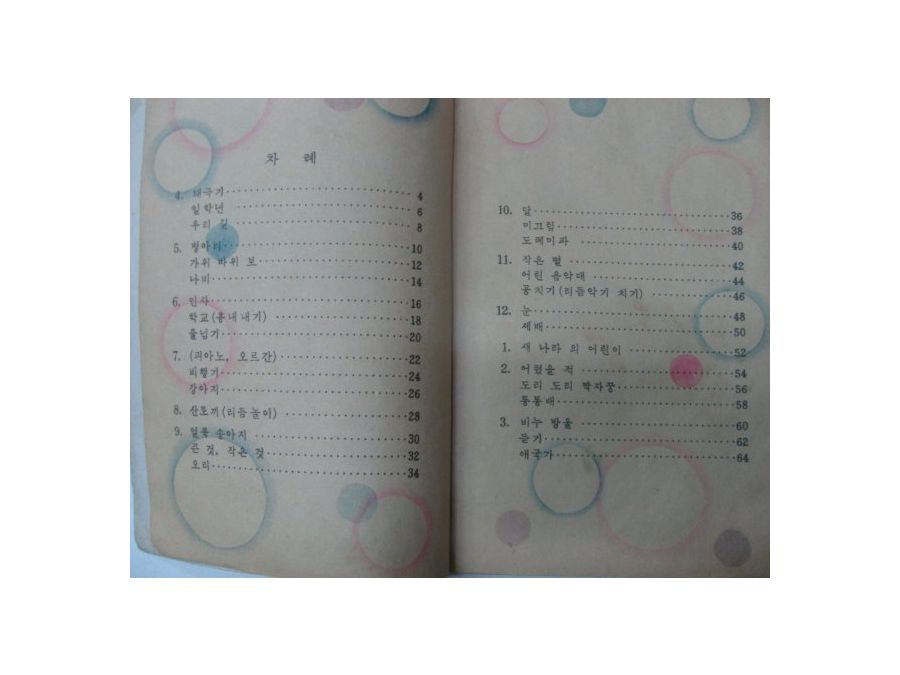 차 례
4. 태극기 4
일학년 6
우리 집 8
5. 병아리 10
가위 바위 보 12
나비 14
6. 인사 16
학교(흉내내기) 18
줄넘기 20
7. (피아노, 오르간) 22
비행기 24
강아지 26
8. 산토끼(리듬놀이) 28
9. 얼룩 송아지 30
큰 것, 작은 것 32
오리 34
10. 달 36
미끄럼 38
도레미파 40
11. 작은 별 42
어린 음악대 44
공치기(리듬악기 치기) 46
12. 눈 48
세배 50
1. 새 나라 의 어린이 52
2. 어렸을 적 54
도리 도리 짝자꿍 56
통통배 58
3. 비누 방울 60
듣기 62
애국가 64